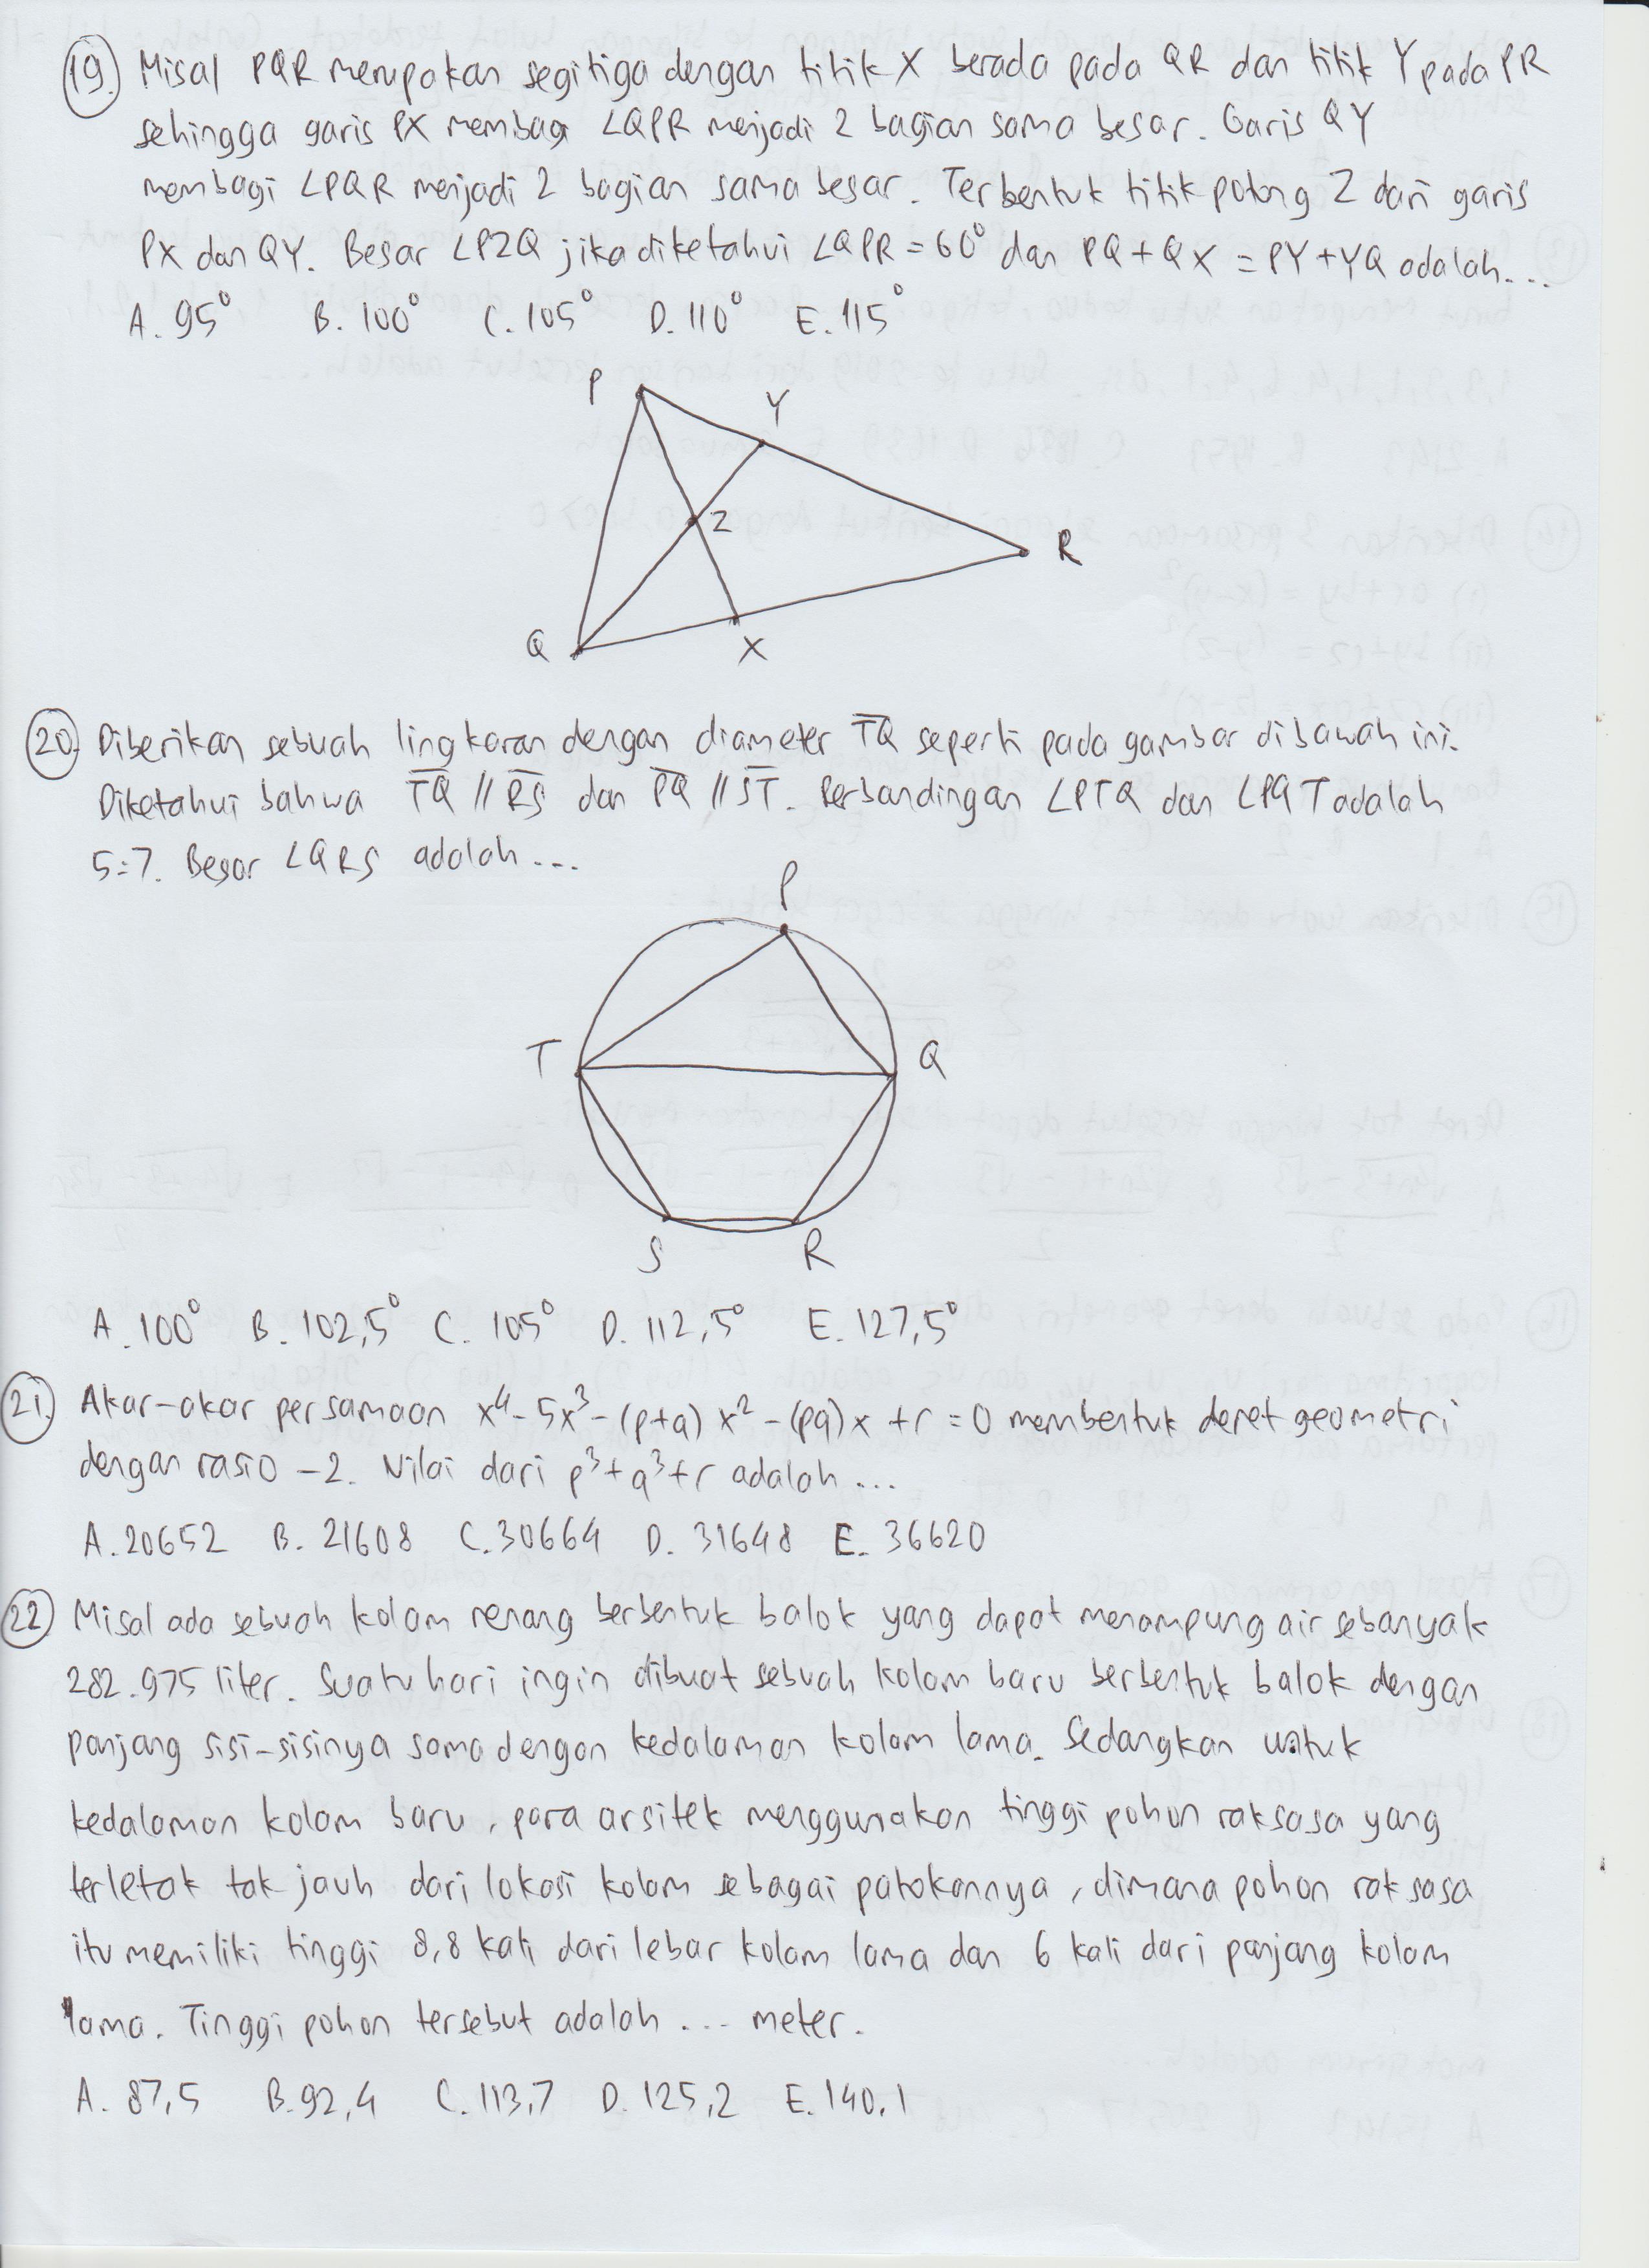 19. Misal PQR merupakan segitiga dengan titik X berada pada QR dan titik Y pada PR
sehingga garis PX membagi ∠QPR menjadi 2 bagian sama besar. Garis QY
membagi ∠PQR menjadi 2 bagian sama besar. Terbentuk titik potong Z dari garis
PX dan QY. Besar ∠PZQ jika diketahui ∠QPR = 60° dan PQ + QX = PY + YQ adalah...
A. 95° B. 100° C. 105° D. 110° E. 115°
P
Y
Z
R
Q
X
20. Diberikan sebuah lingkaran dengan diameter T̅Q̅ seperti pada gambar dibawah ini.
Diketahui bahwa T̅Q̅ // R̅S̅ dan P̅Q̅ // S̅T̅. Perbandingan ∠PTQ dan ∠PQT adalah
5:7. Besar ∠QRS adalah ...
P
T
Q
S
R
A. 100° B. 102,5° C. 105° D. 112,5° E. 127,5°
21. Akar-akar persamaan x⁴ - 5x³ - (p+q)x² - (pq)x + r = 0 membentuk deret geometri
dengan rasio -2. Nilai dari p³+q³+r adalah ...
A. 20652 B. 21608 C. 30664 D. 31648 E. 36620
22. Misal ada sebuah kolam renang berbentuk balok yang dapat menampung air sebanyak
282.975 liter. Suatu hari ingin dibuat sebuah kolam baru berbentuk balok dengan
panjang sisi-sisinya sama dengan kedalaman kolam lama. Sedangkan untuk
kedalaman kolam baru, para arsitek menggunakan tinggi pohon raksasa yang
terletak tak jauh dari lokasi kolam sebagai patokannya, dimana pohon raksasa
itu memiliki tinggi 8,8 kali dari lebar kolam lama dan 6 kali dari panjang kolam
lama. Tinggi pohon tersebut adalah ... meter.
A. 87,5 B. 92,4 C. 113,7 D. 125,2 E. 140,1